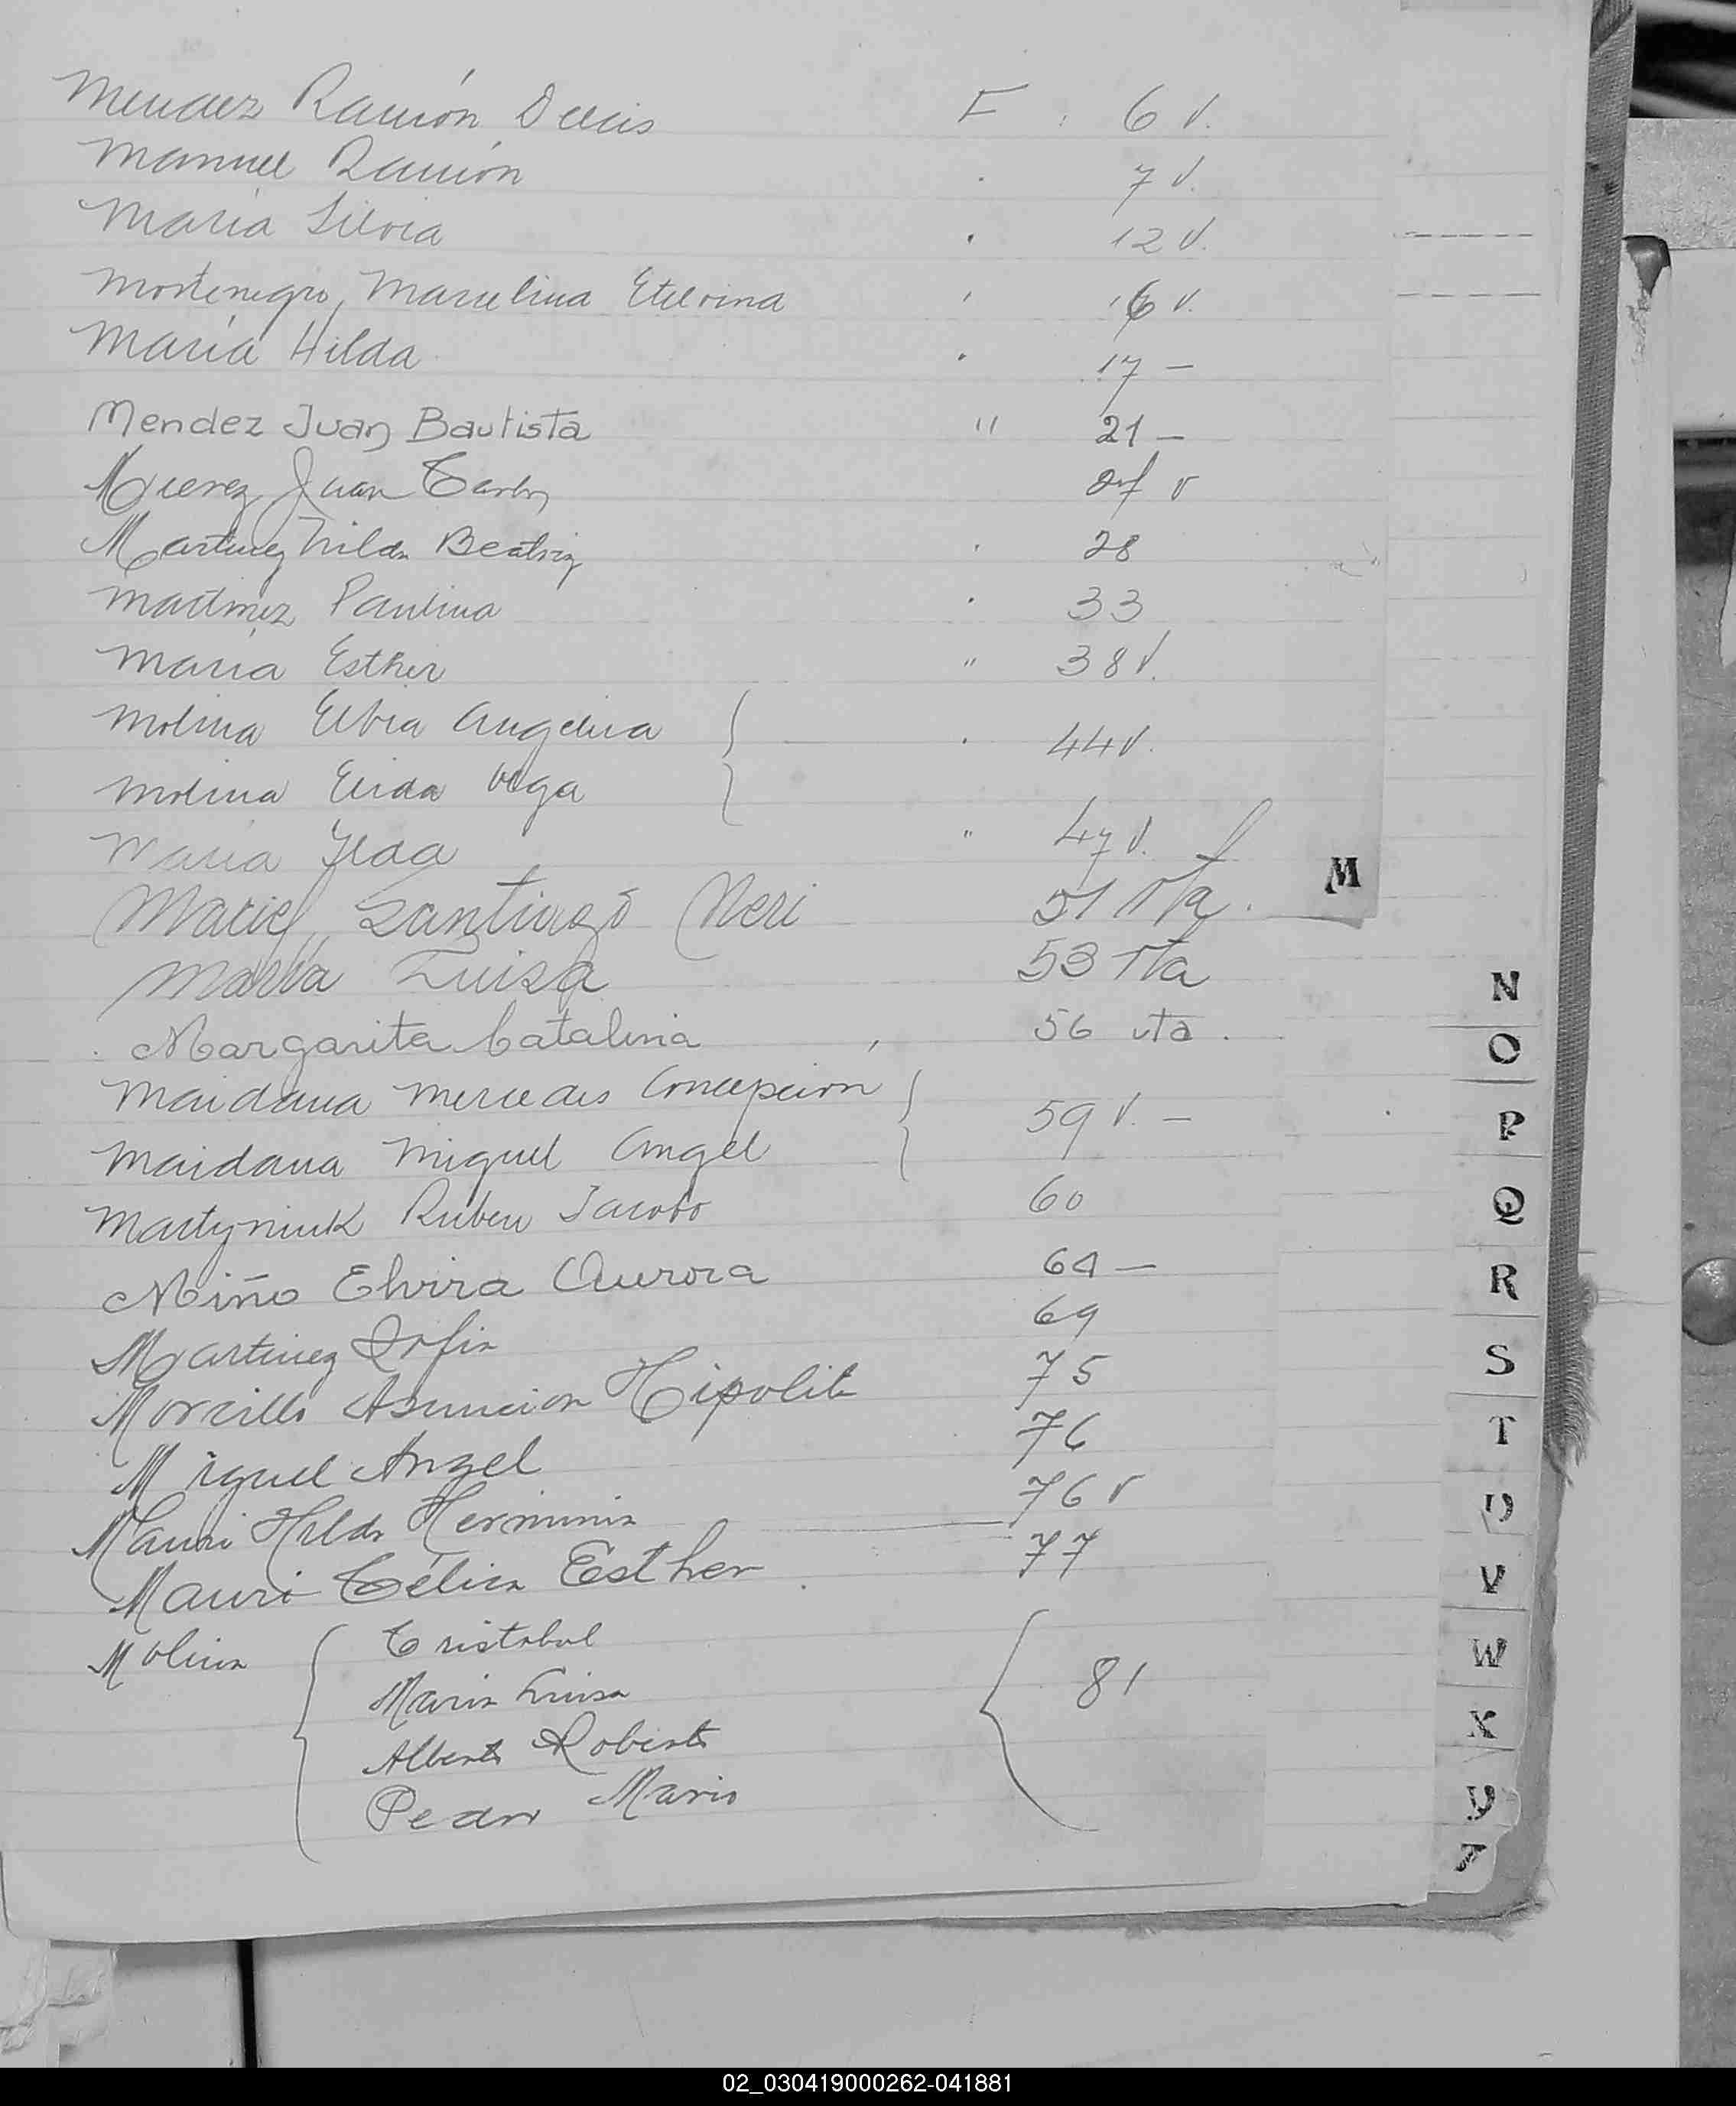 Mendez Ramón Delcis F : 6 v.
Manuel Ramón . 7 v.
María Silvia . 12 v.
Montenegro, Marcelina Etelvina , 16 v.
María Hilda . 17 –
Mendez Juan Bautista " 21 –
Juan Carlos v
Martinez Nilda Beatriz . 28
Martinez Paulina . 33
Maria Esther " 38 v.
Molina Elbia Angelica . 44 v.
Molina Elida Olga
Maria Ilda " 47 v.
Maciel, Santiago Neri 51 vta.
Maria Luisa 53 vta
Margarita Catalina , 56 vta.
Maidana Mercedes Concepcion 59 v. –
Maidana Miguel Angel
Martyniuk Ruben Jacobo 60
Miño Elvira Aurora 64 –
Martinez 69
Morcillo Asuncion Hipolito 75
Miguel Angel 76
Mauri Hilda Herminia 76 v
Mauri Célica Esther 77
Molina Cristobal
Maria Luisa 81
Alberto Roberto
Pedro Mario
M
N
O
P
Q
R
S
T
U
V
W
X
Y
Z
02_030419000262-041881